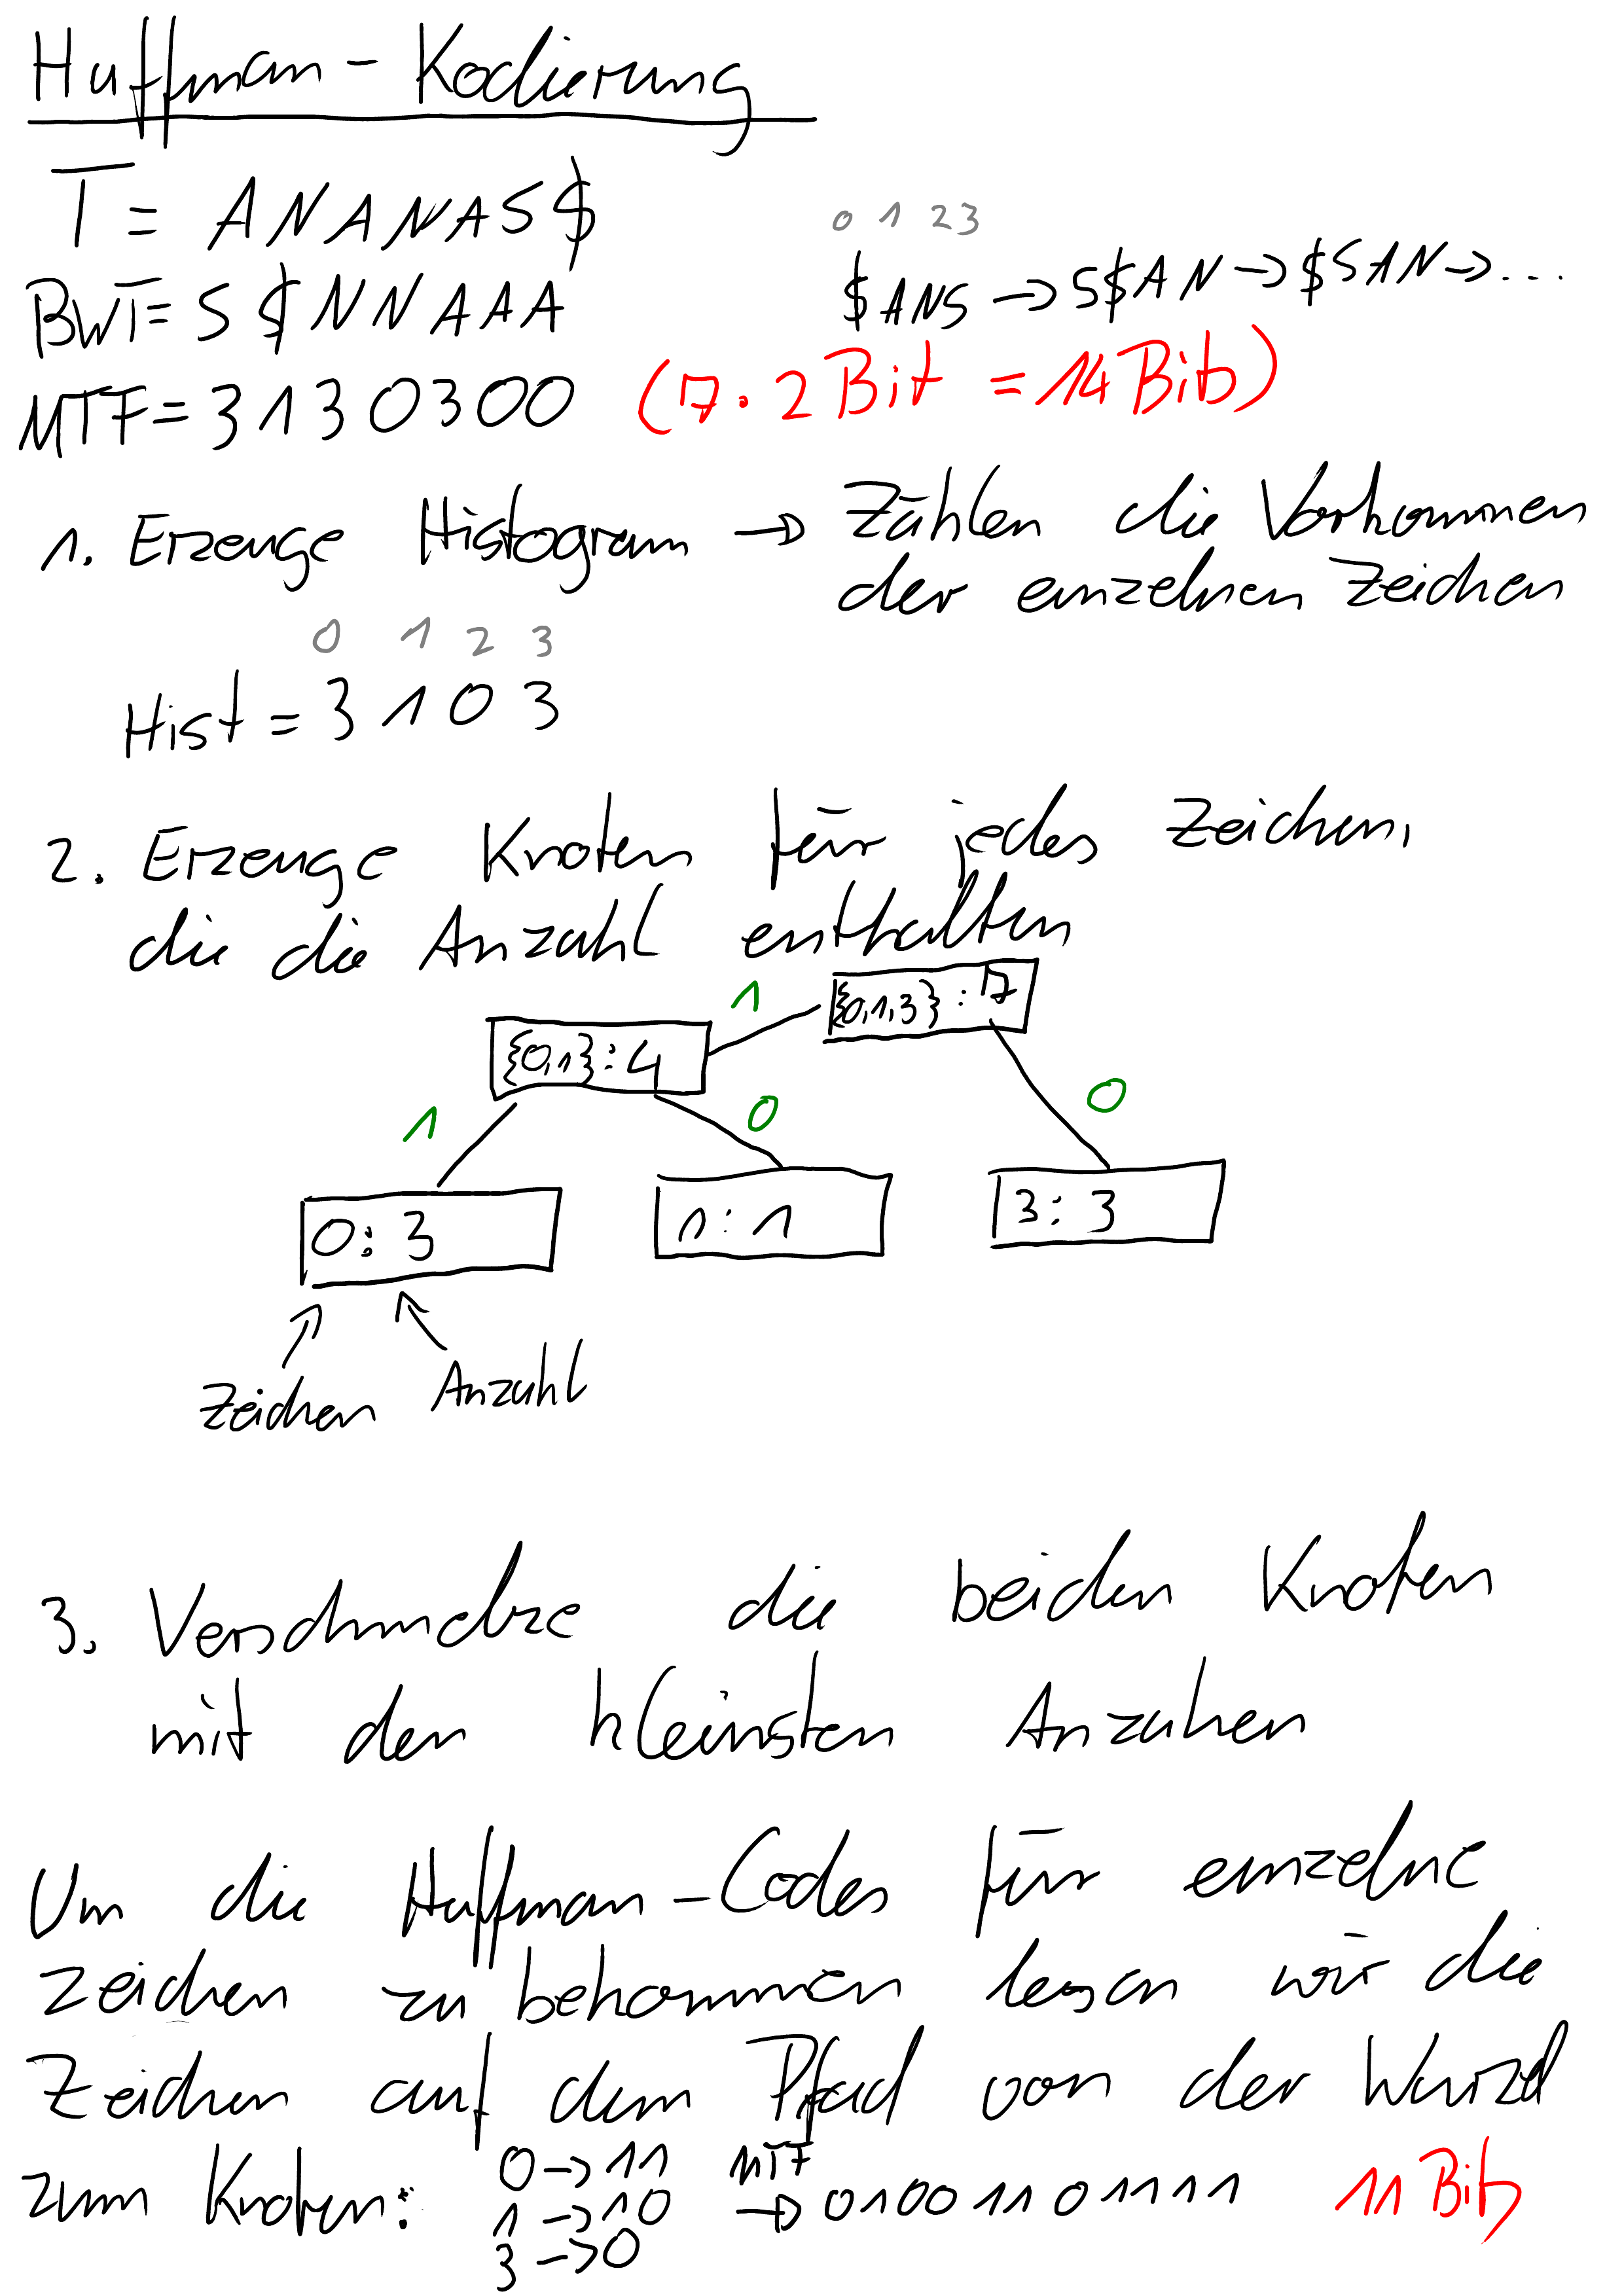 Huffman-Kodierung
T = ANANAS$
0 1 2 3
BWT = S $ N N A A A
$ANS → S$AN → $SAN → ...
MTF = 3 1 3 0 3 0 0 (7 · 2 Bit = 14 Bit)
1. Erzeuge Histogram → Zählen die Vorkommen
der einzelnen Zeichen
0 1 2 3
Hist = 3 1 0 3
2. Erzeuge Knoten für jedes Zeichen,
die die Anzahl enthalten
{0,1,3} : 7
1
{0,1} : 4
1 0 0
0 : 3 1 : 1 3 : 3
Zeichen Anzahl
3. Verschmelze die beiden Knoten
mit den kleinsten Anzahlen
Um die Huffman-Codes für einzelne
zeichen zu bekommen lesen wir die
Zeichen auf dem Pfad von der Wurzel
zum Knoten:
0 → 11
1 → 10
3 → 0
MTF
→ 01001101111 11 Bit